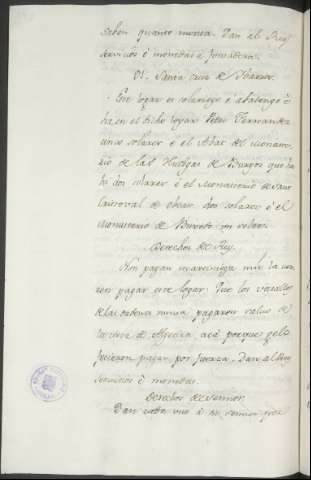 saben quanto monta. Dan al Rey
servicios è monedas è fonsadera.
St. Santa Cruz de
Este logar es solariego è abadengo è
ha en el dicho logar Pero Fernandez
unos solares è el Abat del monaste-
rio de las Huelgas de Burgos que ha
hi dos solares è el Monasterio de Sant
Cristoval de Ibeas dos solares è el
Monasterio de un solar.
Derechos del Rey.
Non pagan martiniega nin la co-
ren pagar este logar. Que los vasallos
de las ordenes nunca pagaron salvo de
la cerca de Algecira acá porque gelo
ficieron pagar por fuerza. Dan al Rey
servicios è monedas.
Derechos del señor.
Dan cada uno à su señor por